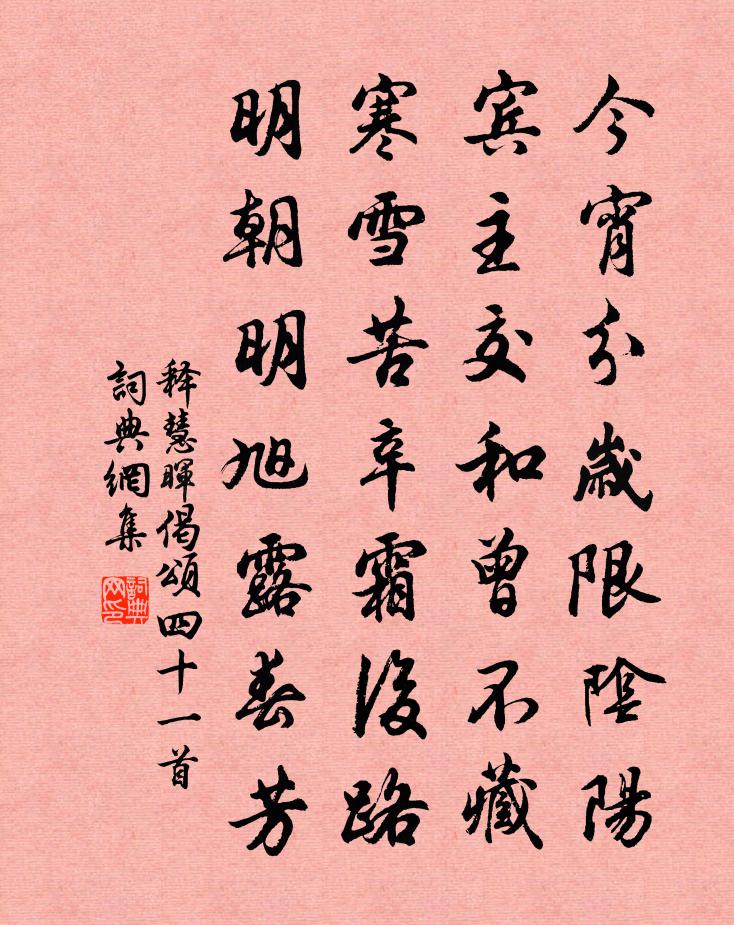 今宵分歲限陰陽
賓主交和曾不藏
寒雪苦辛霜後路
明朝明旭露春芳
释慧暉偈頌四十一首
詞典網集
詞典
网印